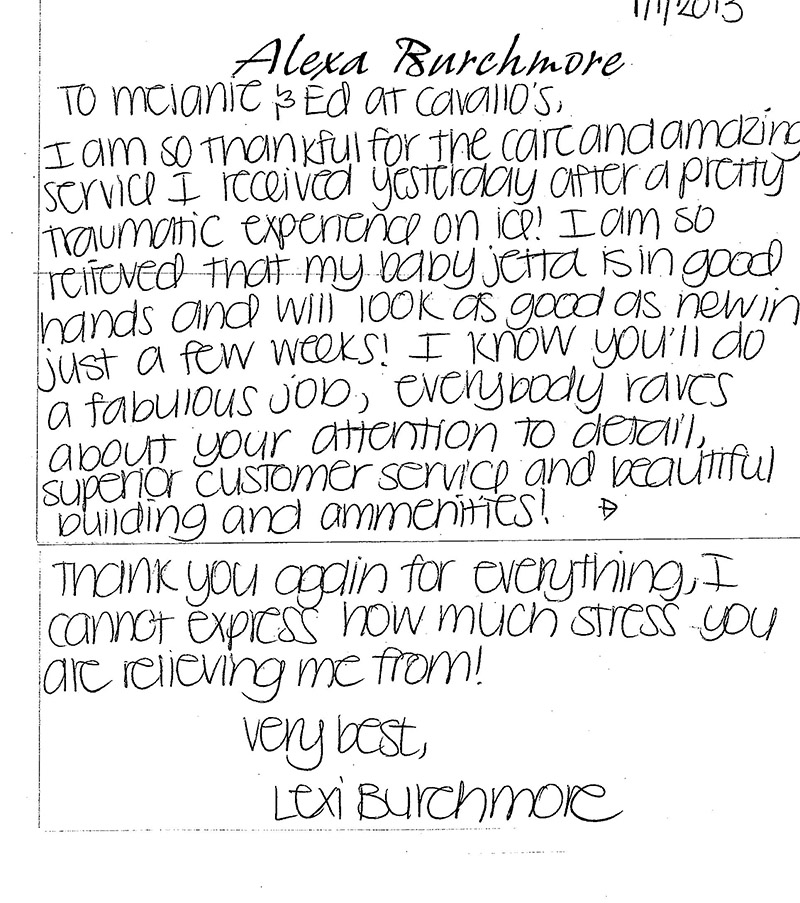 1/11/2013
Alexa Burchmore
To melanie & Ed at cavallo's,
I am so thankful for the care and amazing
service I received yesterday after a pretty
traumatic experience on ice! I am so
relieved that my baby jetta is in good
hands and will look as good as new in
just a few weeks! I know you'll do
a fabulous job, everybody raves
about your attention to detail,
superior customer service and beautiful
building and ammenities!
Thank you again for everything, I
cannot express how much stress you
are relieving me from!
very best,
Lexi Burchmore